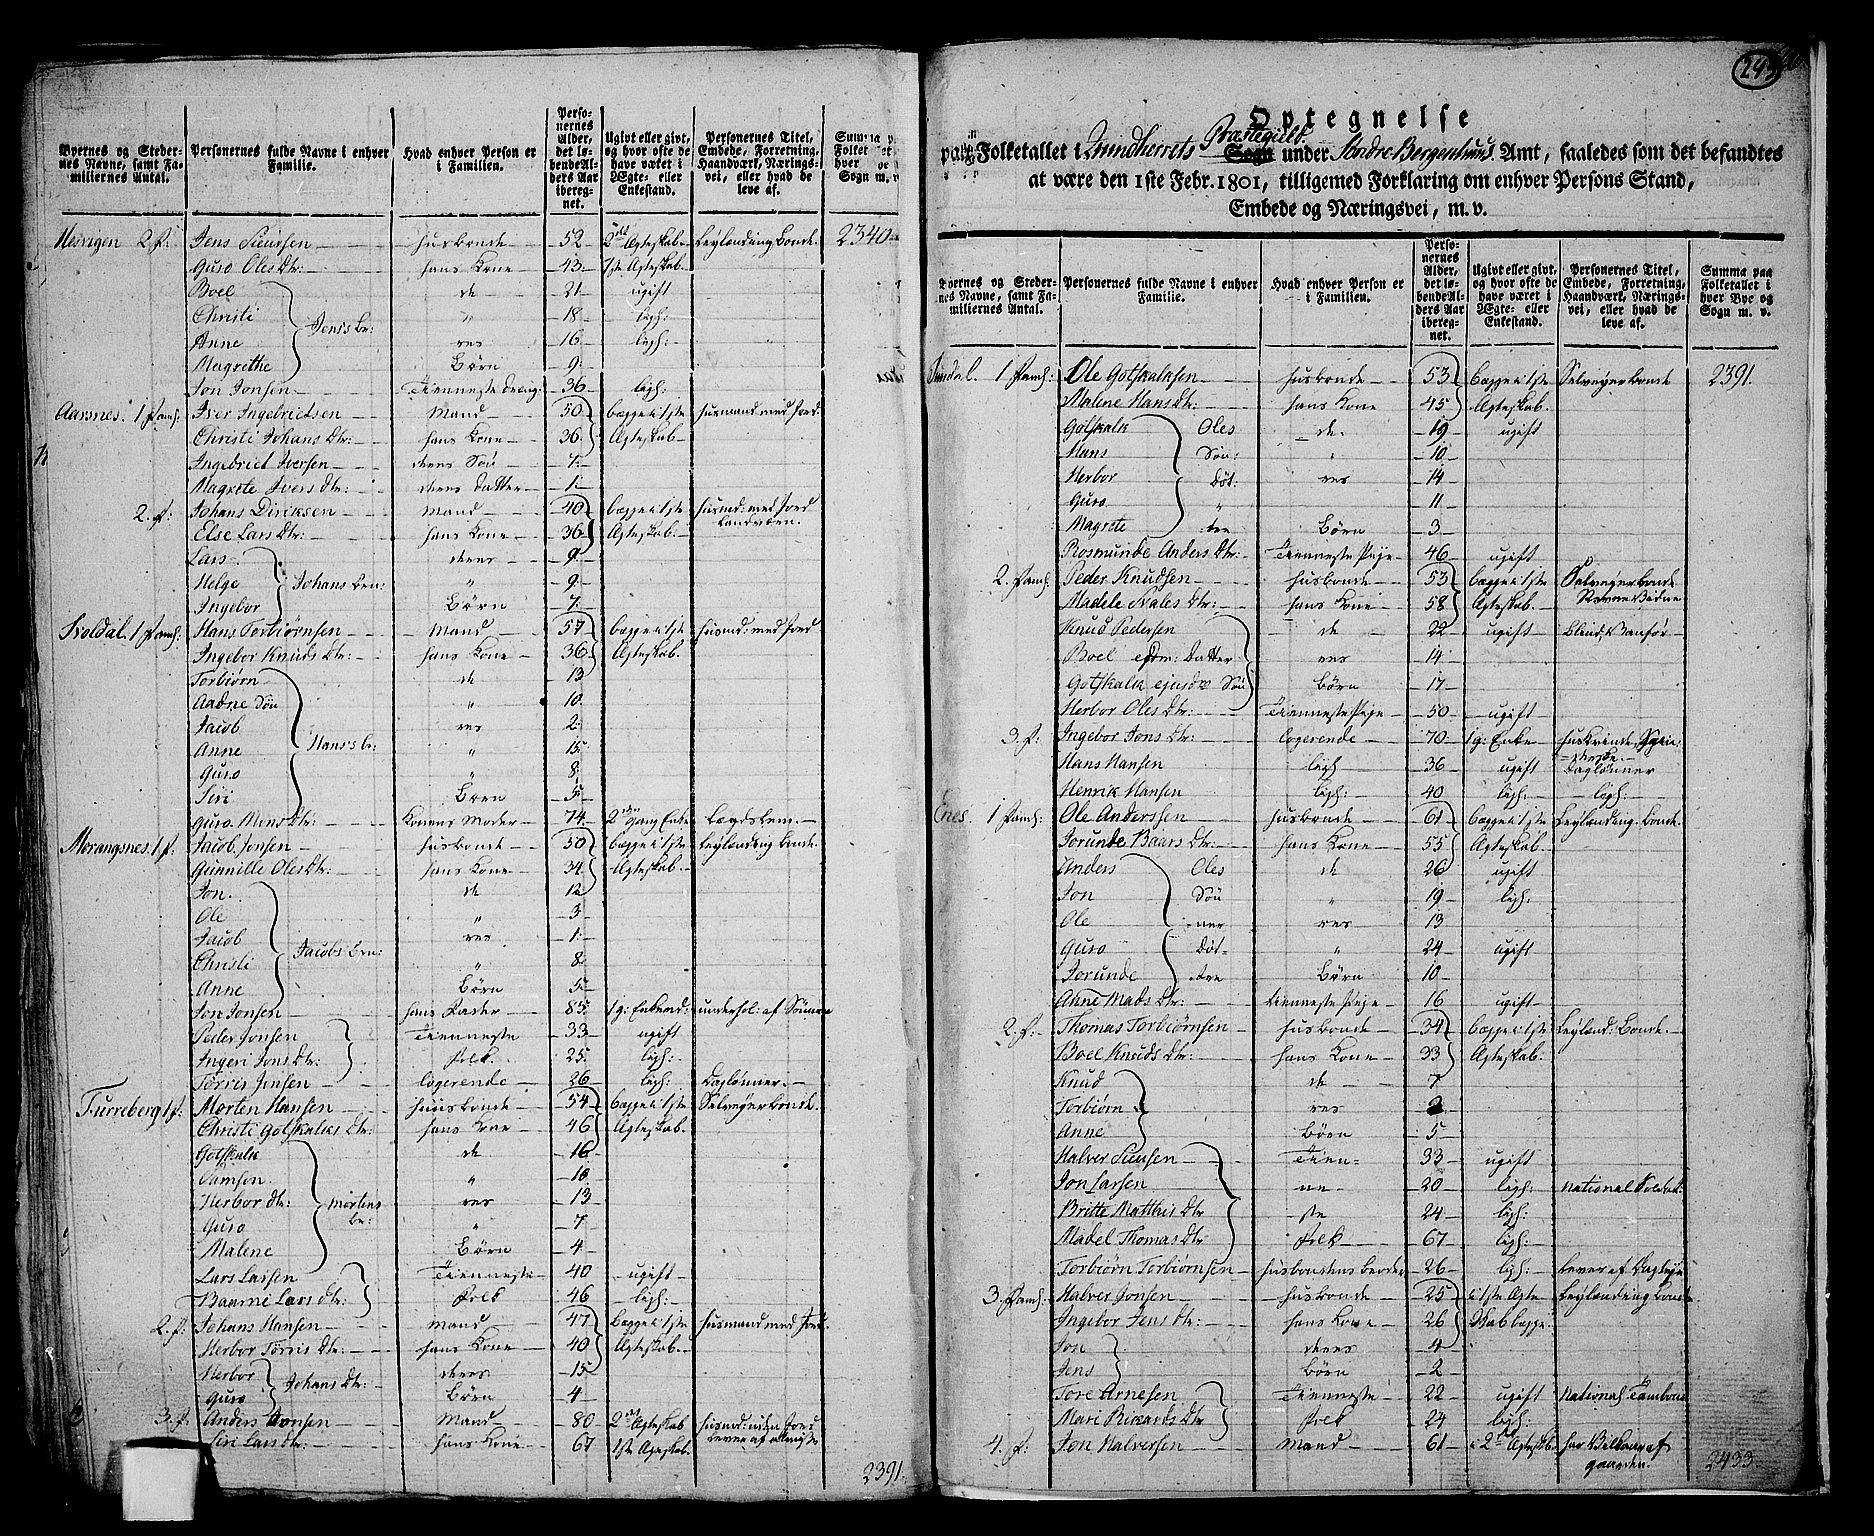 Byernes og Stedernes Navne, samt Familiernes Antal.
Personernes fulde Navne i enhver Familie.
Hvad enhver Person er i Familien.
Personernes Alder, det løbende Alders Aar iberegnet.
Ugivt eller givt, og hvor ofte de have været i Ægte- eller Enkestand.
Personernes Titel, Embede, Forretning, Haandværk, Næringsvei, eller hvad de leve af.
Summa paa Folket hver Sogn m. v.
2. f: Jens Siursen husbonde 52 2det Ægteskab Leylænding bonde 2340
Guro Oles Dtr: hans Kone 43 1ste Ægteskab
Boel de 21 ugift
Christi " 18 ligh:
Anne res 16 ligh:
Magrethe Børn 9
Jens's br:
Jon Jonsen Tienneste dreng 36 ligh:
Aarsnes. 1 Famh: Iver Ingebrietsen Mand 50 begge i 1ste husmand med Jord
Christi Johans Dtr: hans Kone 36 Ægteskab
Ingebriet Iversen deres Søn 7
Magrete Ivers Dtr: deres datter 1
2. f: Johans Diriksen Mand 40 begge i 1ste husmd: med Jord
Landværn.
Else Lars Dtr: hans Kone 36 Ægteskab
Lars deres 9
Helge " 9
Ingebor Børn 7
Johans børn:
Svoldal. 1 Famh: Hans Torbiørnsen Mand 57 begge i 1ste husmd: med Jord
Ingebor Knuds Dtr: hans Kone 36 Ægteskab.
Torbiørn de 13
Aadne Søn " 10
Jacob res 2
Anne " 15
Guro " 8
Siri Børn 5
Hans's br:
Guro Mons Dtr: Konens Moder 74 2den gang Enke Lægdslem.
Morangsnes. 1 f: Jacob Jonsen husbonde 50 begge i 1ste Leylænding bonde
Gunnille Oles Dtr: hans Kone 34 Ægteskab.
Jon de 12
Ole " 3
Jacob res 1
Christi " 8
Anne Børn 5
Jacobs brn:
Jon Jonsen hans Fader 85 1 g: Enkemd: underhol: af Sønnen
Peder Jonsen Tienneste 33 ugift
Ingeri Jons Dtr: folk 25 ligh:
Torris Jensen logerende 26 ligh: Daglønner
Furreberg 1 f. Morten Hansen husbonde 54 begge i 1ste Selveyerbonde.
Christi Gotskalks Dtr: hans Kone 46 Ægteskab.
Gotskalk de 16
Samson " 10
Herbor Dtr: res 13
Guro " 7
Malene Børn 4
Mortens br:
Lars Larsen Tienneste 40 ugift
Lars Dtr: folk 46 ligh:
2. f. Johans Hansen mand 47 begge i 1ste husmand med Jord
Herbor Torris Dtr: hans Kone 40 Ægteskab
Herbor deres 15
Guro Børn 4
Johans Dtr:
3. f. Anders Jonsen Mand 80 2det Ægteskab husmd: uden Jord
Lever af almisse
Siri Lars Dtr: hans Kone 67 1ste Ægteskab
2391.
243
Optegnelse
paa Folketallet i Quindherrets Præstegield Sogn under Søndre Bergenhuus Amt, saaledes som det befandtes
at være den 1ste Febr. 1801, tilligemed Forklaring om enhver Persons Stand,
Embede og Næringsvei, m. v.
Byernes og Stedernes Navne, samt Familiernes Antal.
Personernes fulde Navne i enhver Familie.
Hvad enhver Person er i Familien.
Personernes Alder, det løbende Alders Aar iberegnet.
Ugivt eller givt, og hvor ofte de have været i Ægte- eller Enkestand.
Personernes Titel, Embede, Forretning, Haandværk, Næringsvei, eller hvad de leve af.
Summa paa Folketallet i hver Bye og Sogn m. v.
Sundal. 1 Famh: Ole Gotskalksen husbonde 53 begge i 1ste Selveyerbonde 2391.
Malene Hans Dtr: hans Kone 45 Ægteskab.
Gotskalk Oles de 19 ugift
Hans Søn: " 10
Herbor Døt: res 14
Guro " 11
Magrete tre Børn 3
Rosmunde Anders Dtr: Tienneste Pige 46 ugift
2. Famh: Peder Knudsen husbonde 53 begge i 1ste Selveyerbonde
Madele Dtr: hans Kone 58 Ægteskab.
Knud Pedersen de 22 ugift Blind, Vanfør
Boel ejdm: Datter res 14
Gotskalk ejusd Søn Børn 17
Herbor Oles Dtr: Tienneste Pige 50 ugift
3. f: Ingebor Jons Dtr: Logerende 70 1 g: Enke huskvinde
Hans Hansen ligh 36 ugift Daglønner
Henrik Hansen ligh: 40 ligh: ligh:
Enes. 1 Famh: Ole Anderssen husbonde 61 begge i 1ste Leylænding bonde.
Jorunde Baars Dtr: hans Kone 55 Ægteskab.
Anders Oles de 26 ugift
Jon Søn " 19 ligh:
Ole ner res 13
Guro Døt " 24 ugift
Jorunde tre Børn 10
Anne Mads Dtr: tienneste Pige 16 ugift
2. f. Thomas Torbiørnsen husbonde 34 begge i 1ste Leylænd: Bonde.
Boel Knuds Dtr: hans Kone 33 Ægteskab.
Knud de 7
Torbiørn res 2
Anne Børn 5
Halver Siursen Tien 33 ugift
Jon Larsen ne 20 ligh: national Soldat
Britte Matthis Dtr ste 24 ligh:
Madel Thomas Dtr folk 67 ligh:
Torbiørn Torbiørnsen husbondens broder 26 ligh: Lever af
3. Famh: Halver Jonsen husbonde 25 i 1ste Ægte Leylænding bonde
Ingebor Jens Dtr: hans Kone 26 skab begge
Jon deres 4
Jens børn 2
Tore Arnesen Tienneste 22 ugift national Tambour
Mari Rikards Dtr folk 24 ligh:
4. f: Jon Halversen Mand 61 i 2det Ægteskb. har Vilkaar af
gaarden.
2433